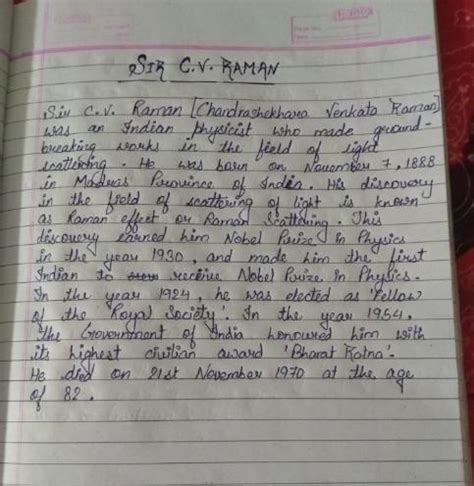 SIR C.V. RAMAN
Sir C.V. Raman [Chandrashekhara Venkata Raman]
was an Indian physicist who made ground-
breaking works in the field of light
scattering. He was born on November 7, 1888
in Madras Province of India. His discovery
in the field of scattering of light is known
as Raman effect or Raman Scattering. This
discovery earned him Nobel Prize in Physics
in the year 1930, and made him the first
Indian to receive Nobel Prize in Physics.
In the year 1924, he was elected as 'Fellow
of the Royal Society'. In the year 1954,
the Government of India honoured him with
its highest civilian award 'Bharat Ratna'.
He died on 21st November 1970 at the age
of 82.